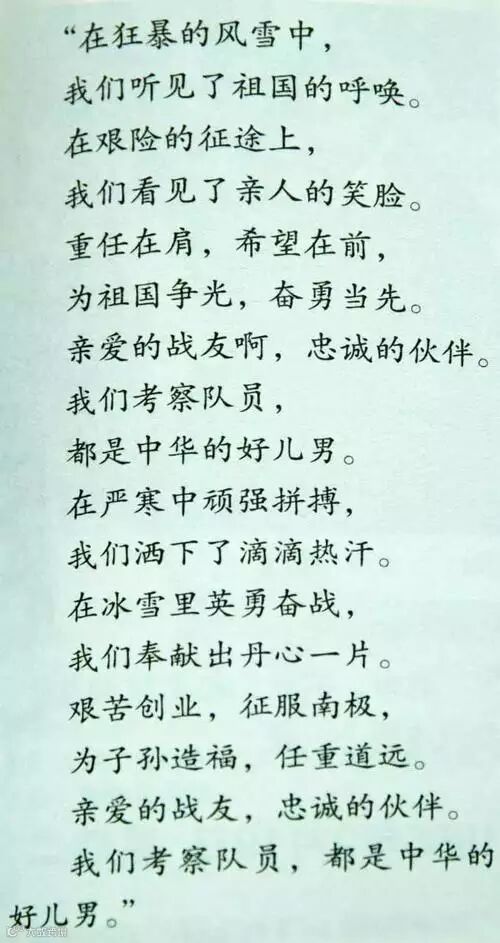 “在狂暴的风雪中，
我们听见了祖国的呼唤。
在艰险的征途上，
我们看见了亲人的笑脸。
重任在肩，希望在前，
为祖国争光，奋勇当先。
亲爱的战友啊，忠诚的伙伴。
我们考察队员，
都是中华的好儿男。
在严寒中顽强拼搏，
我们洒下了滴滴热汗。
在冰雪里英勇奋战，
我们奉献出丹心一片。
艰苦创业，征服南极，
为子孙造福，任重道远。
亲爱的战友，忠诚的伙伴。
我们考察队员，都是中华的
好儿男。”